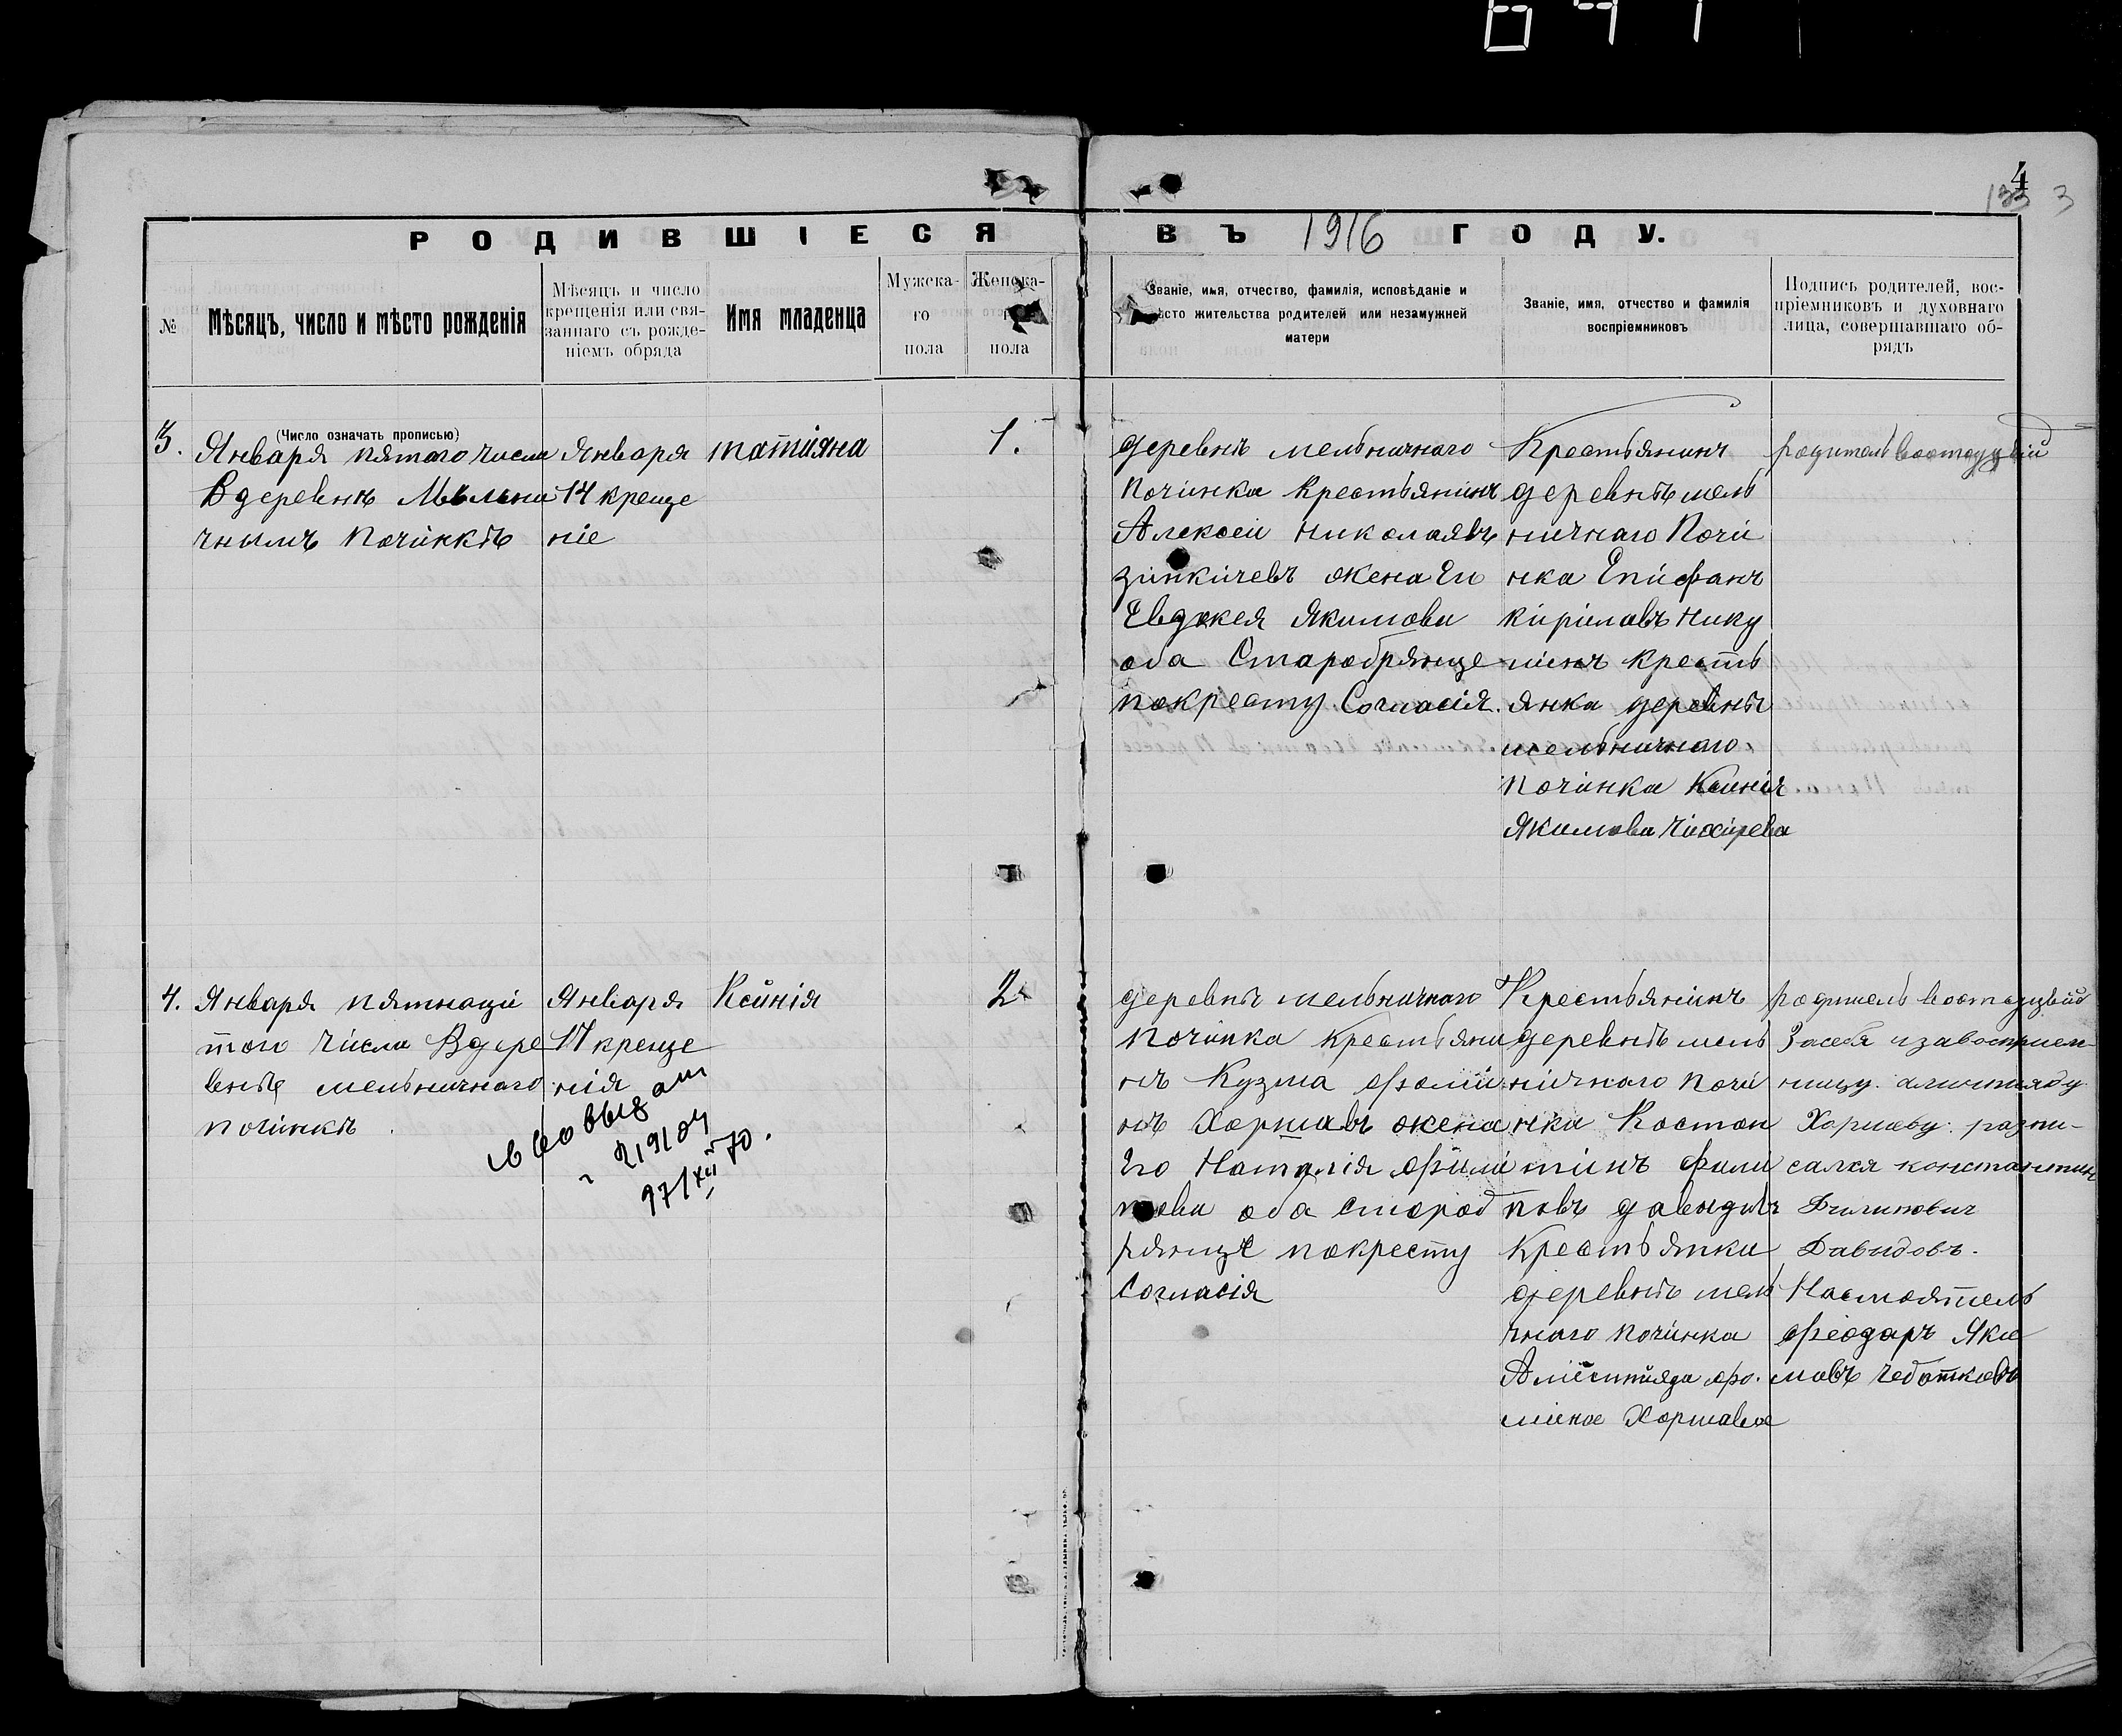 641
4
133 3
РОДИВШІЕСЯ ВЪ 1916 ГОДУ.
№
Мѣсяцъ, число и мѣсто рожденія
Мѣсяцъ и число
крещенія или свя-
заннаго съ рожде-
ніемъ обряда
Имя младенца
Мужска-
го
пола
Женска-
пола
Званіе, имя, отчество, фамилія, исповѣданіе и
мѣсто жительства родителей или незамужней
матери
Званіе, имя, отчество и фамилія
воспріемниковъ
Подпись родителей, вос-
пріемниковъ и духовнаго
лица, совершавшаго об-
рядъ
(Число означать прописью)
3.
Января пятого числа
В деревнѣ Мѣльни
чнымъ починкѣ
Января
14 креще
ніе
татіяна
1.
деревнѣ мельничнаго
починка крестьянинъ
Алексей николаявъ
зинкичевъ жена Ег
Евдокея Якимова
оба Старобрянце
покресту Согласія.
Крестьянинъ
деревнѣ мель
ничнаго Почи
нка Епифанъ
Кирилавъ Нику
линъ кресть
янка деревнѣ
мельничнаго
Починка Ксинія
Якимова Чихирева
родитель
4.
Января пятнаци
того числа В дере
внѣ мельничнаго
починкѣ
Января
17 креще
нія
Ксинія
2
деревнѣ мельничнаго
починка крестьяни
нъ Кузма Фоми
нъ Хоршавъ жена
Его Наталія Фили
пова оба стороб
рянцe покресту
Согласія
Крестьянинъ
деревнѣ мель
ничнаго почи
нка Костан
тинъ Фили
повъ давыдавъ
крестьянка
деревнѣ мель
чнаго починка
фо.
мина Хоршавоа
родитель
За себя и за восприем-
ницу
Хоршеву. распи-
салея константинъ
Филипович
Давыдовъ.
Настоятель
Феодаръ Яки
мавъ Чеботковъ
97/XII 70.